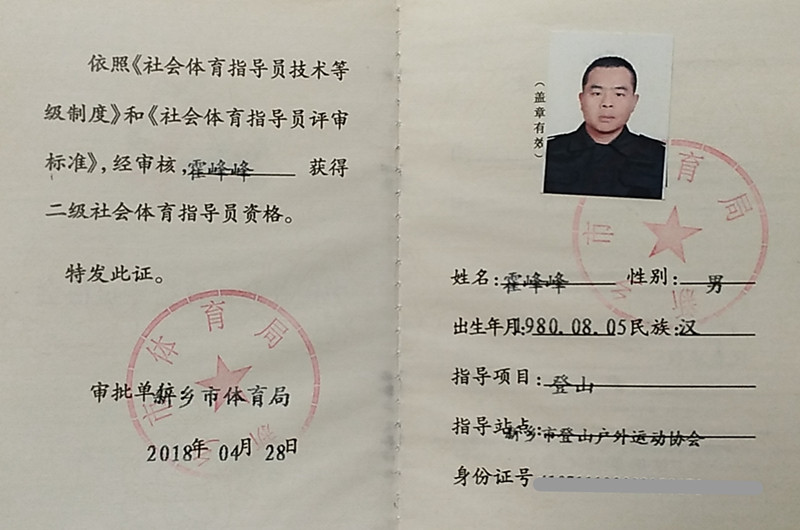 依照《社会体育指导员技术等
级制度》和《社会体育指导员评审
标准》,经审核,霍峰峰 获得
二级社会体育指导员资格。
特发此证。
审批单新乡市体育局
2018年 04月 28日
市体育局
(盖章有效)
市 育局
姓名:霍峰峰 性别: 男
出生年月1980.08.05民族:汉
指导项目:登山
指导站点:新乡市登山户外运动协会
身份证号